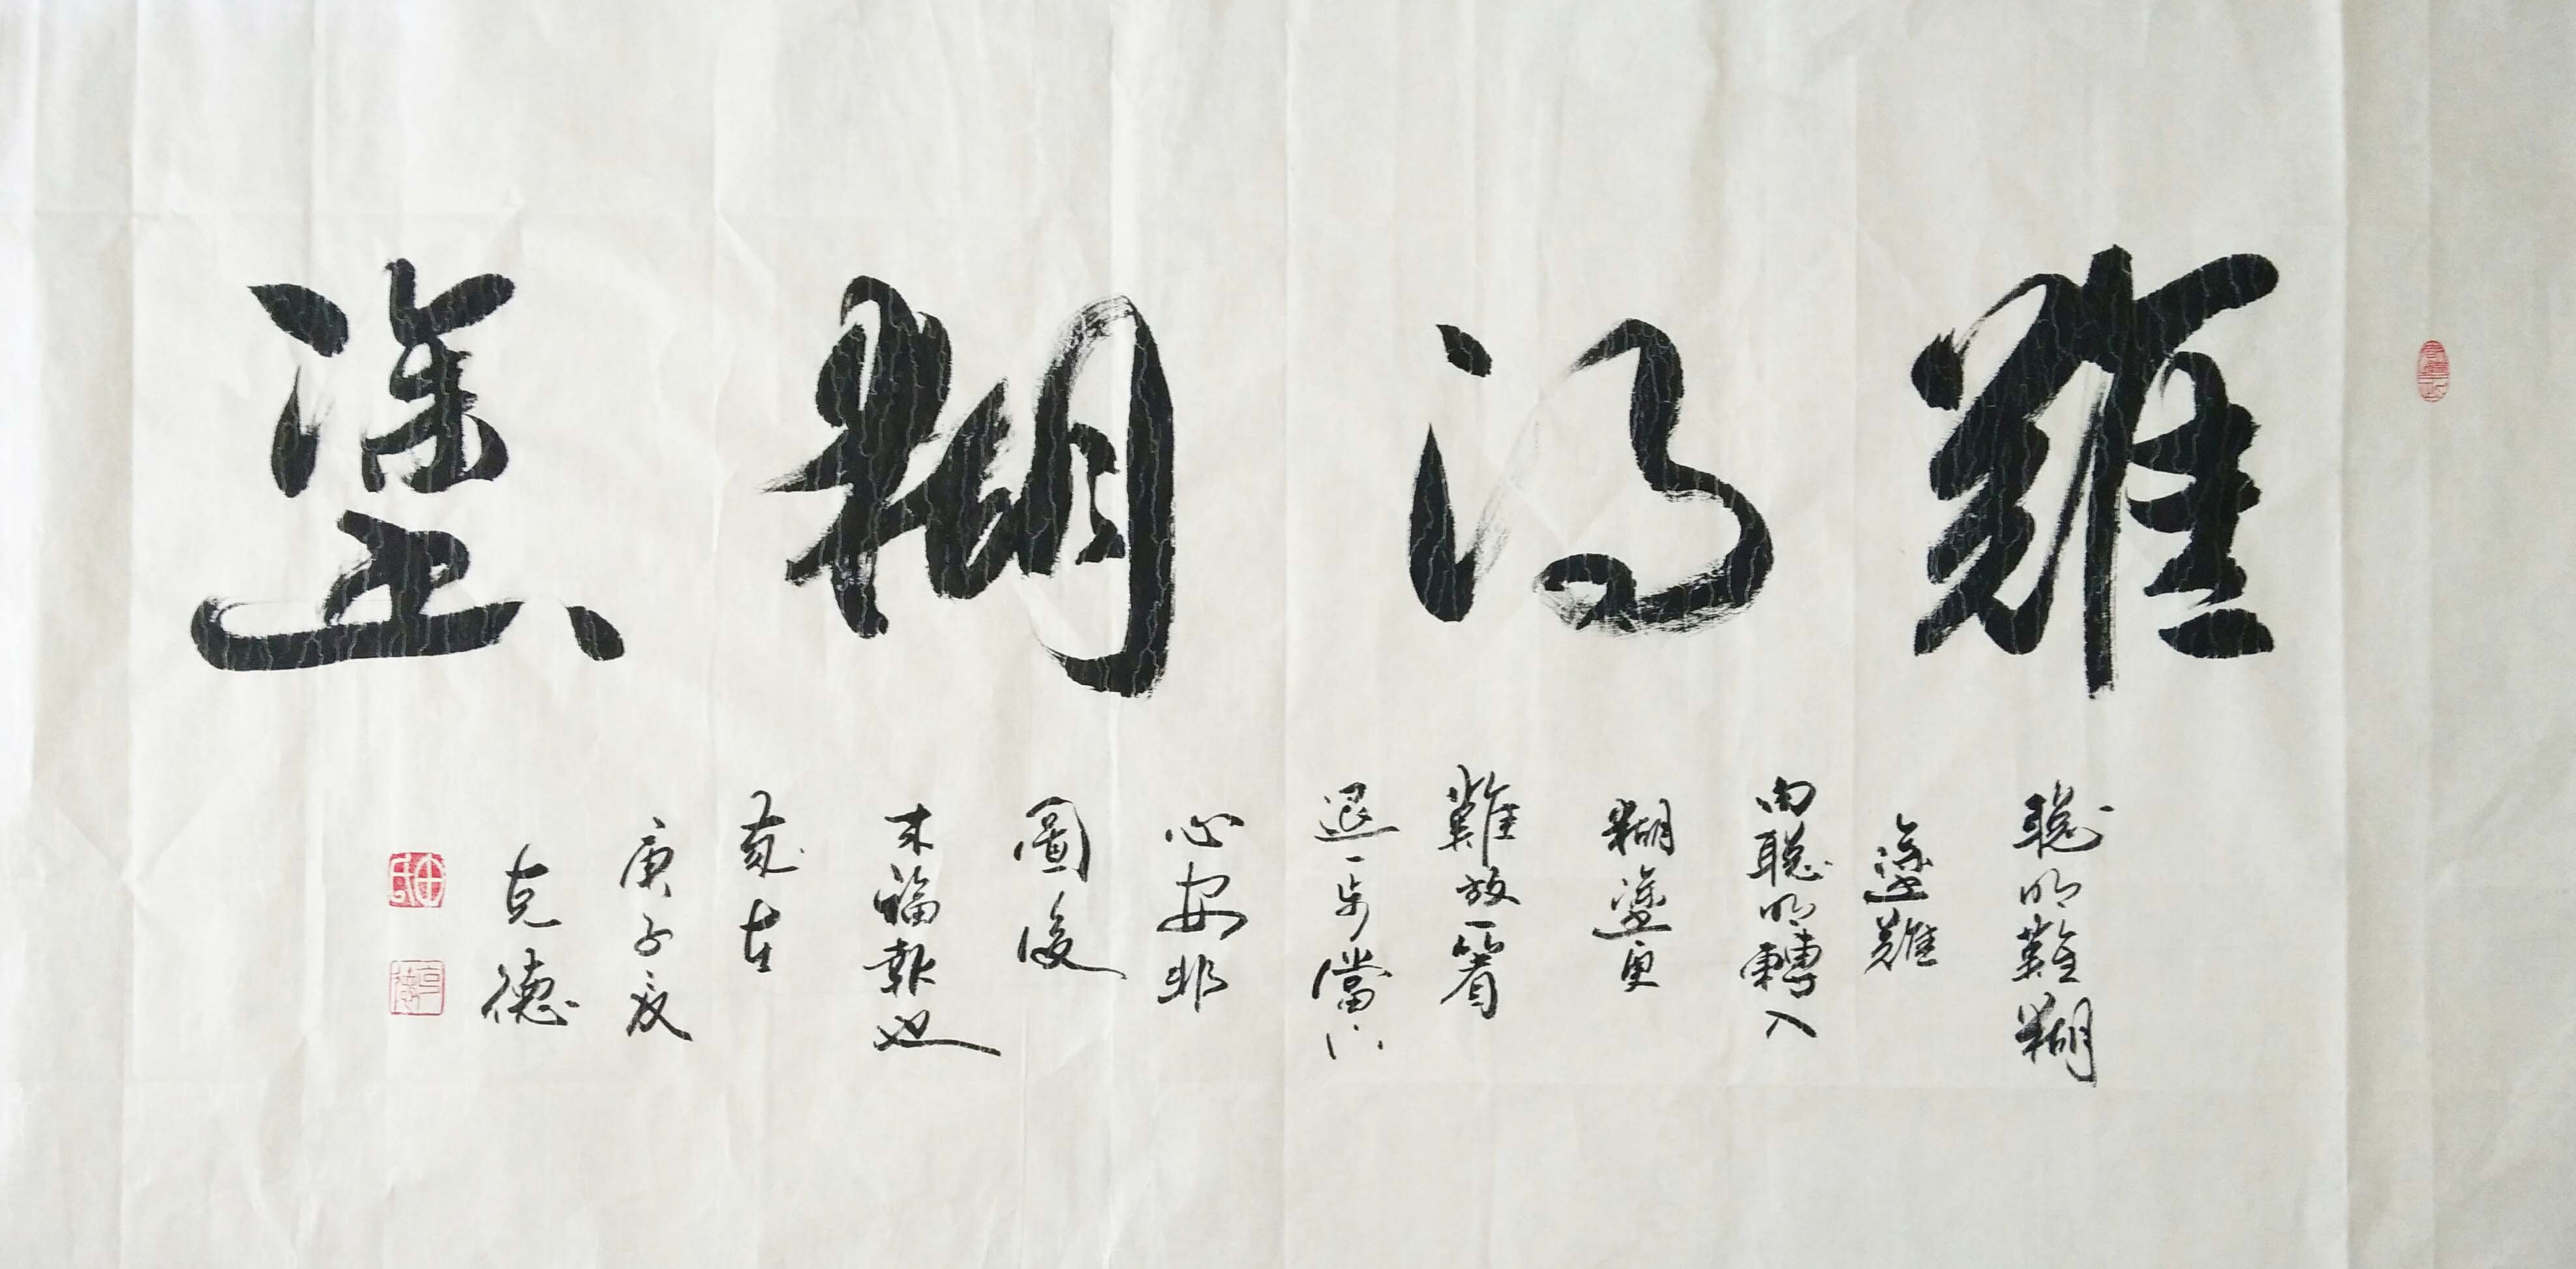 難得糊塗
聰明難糊
塗難
由聰明轉入
糊塗更
難放一着
退一步當下
心安非
圖後
来福報也
庚子夏
克德